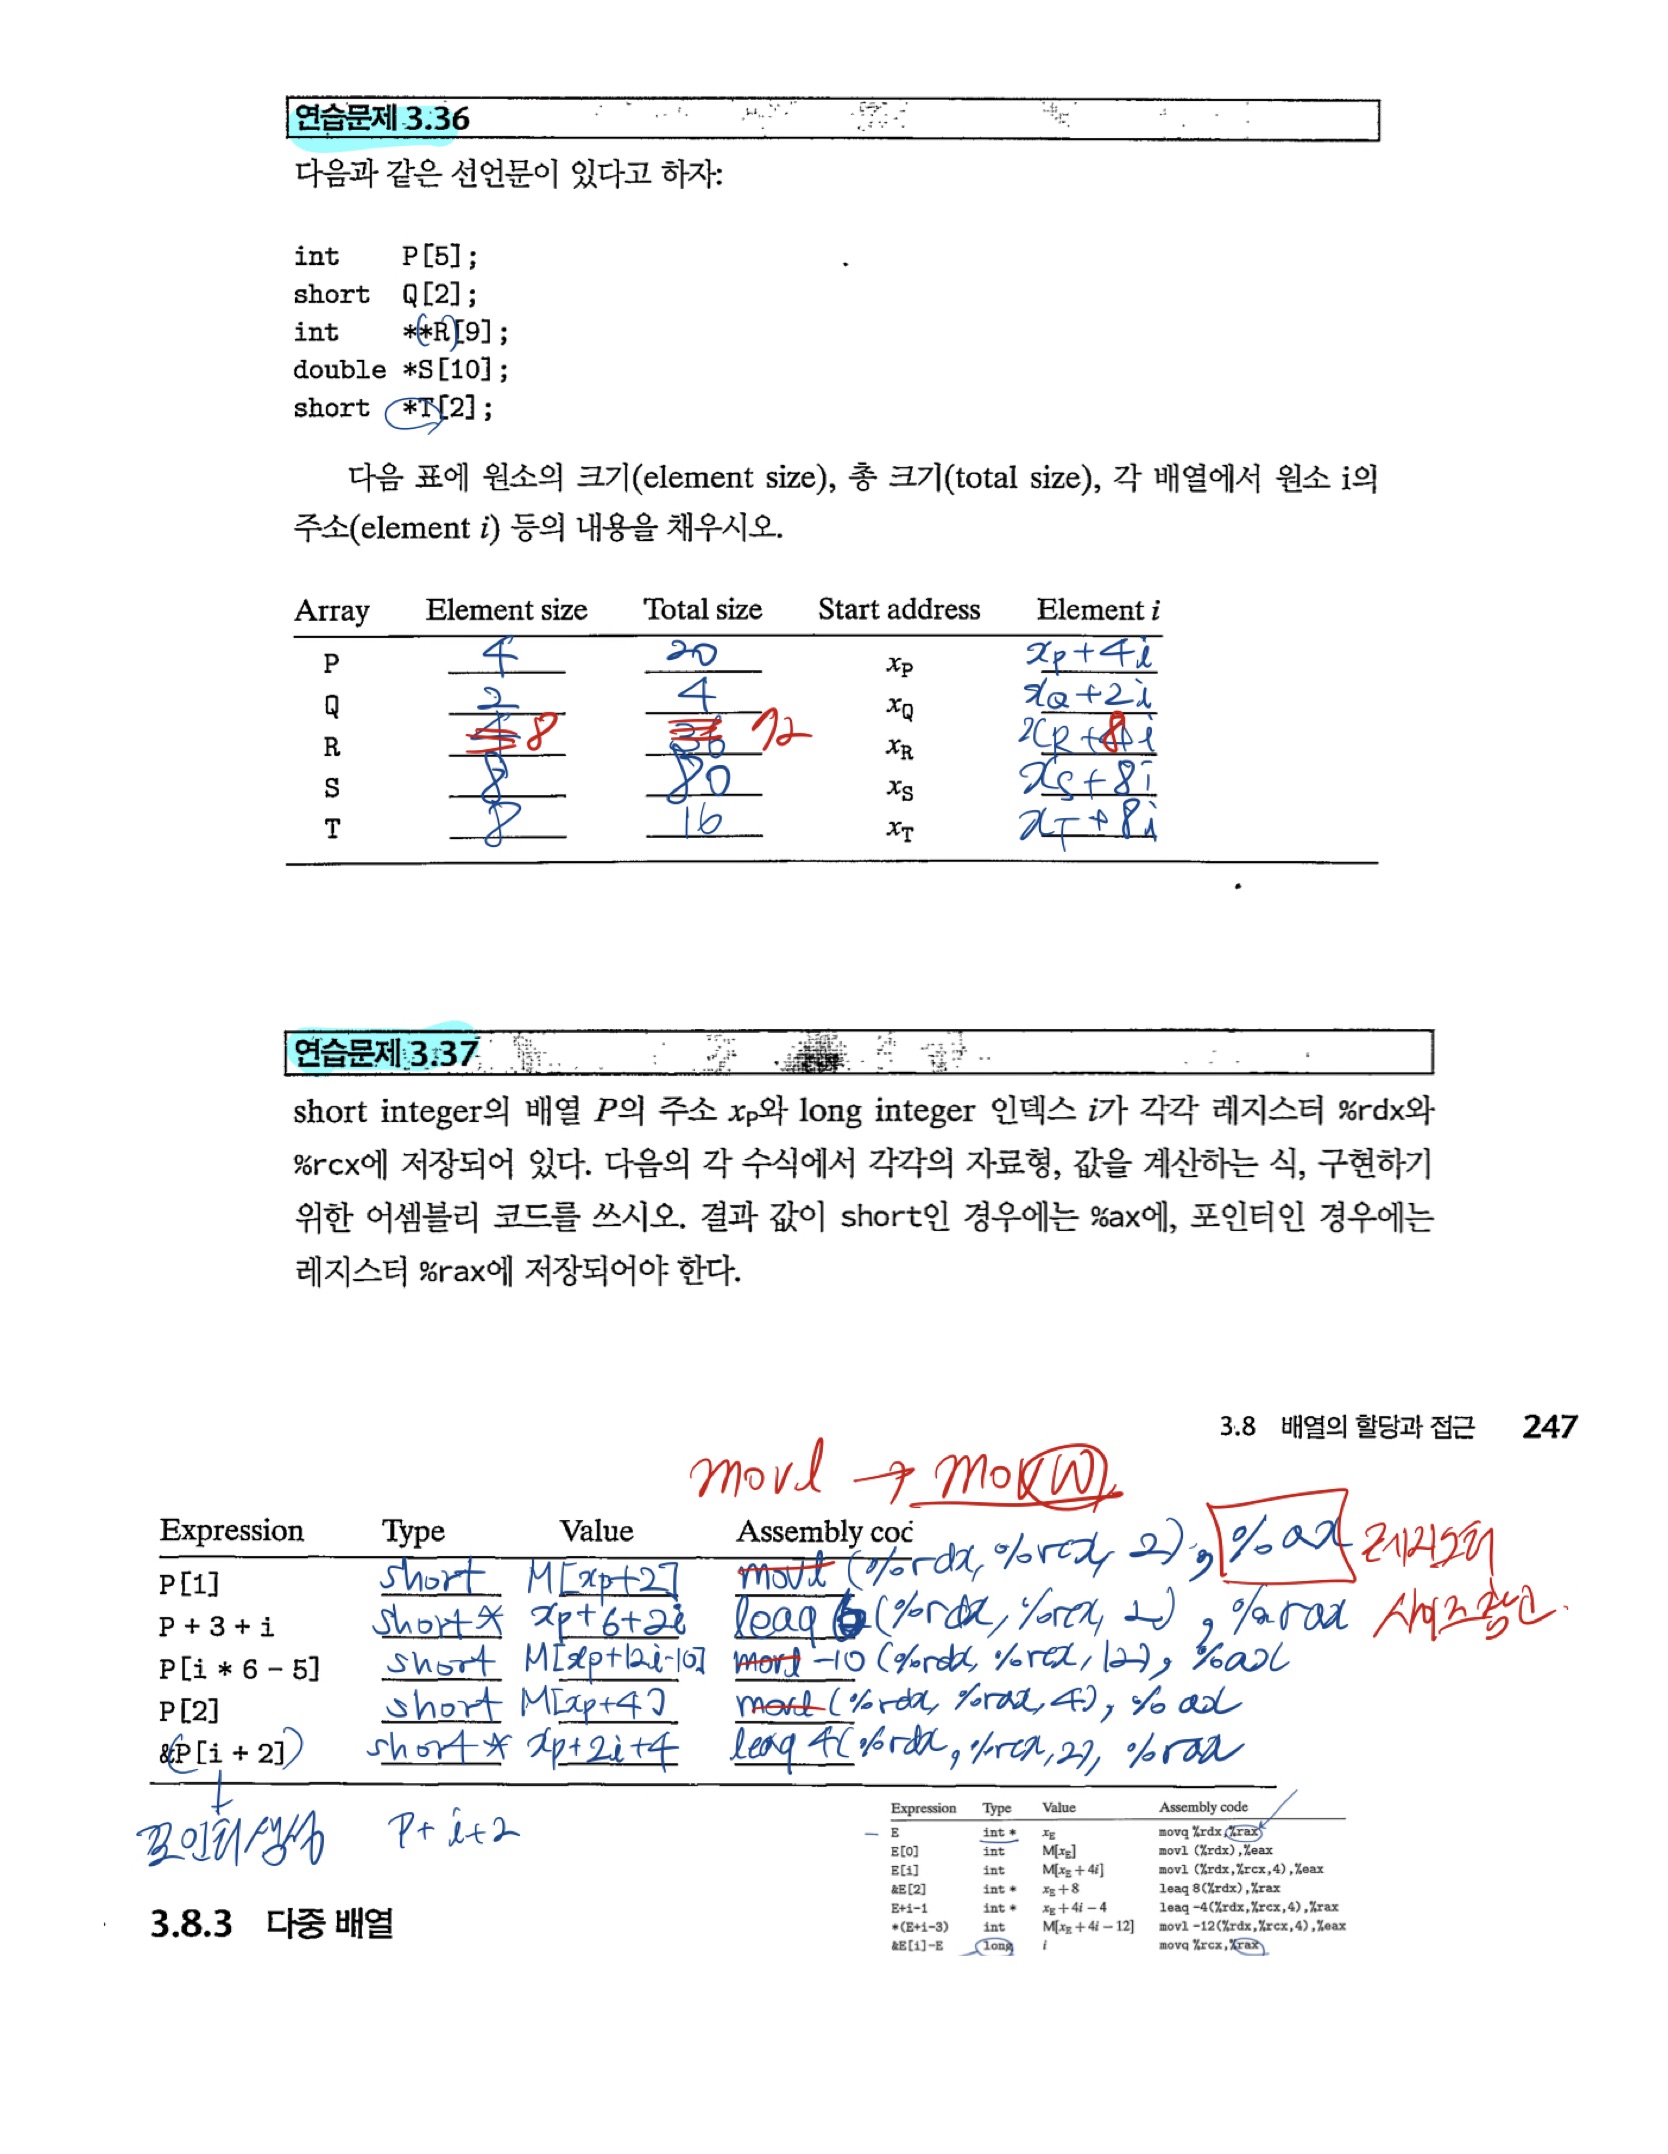 연습문제 3.36
다음과 같은 선언문이 있다고 하자:
int P[5];
short Q[2];
int **(R)[9];
double *S[10];
short *T[2];
다음 표에 원소의 크기(element size), 총 크기(total size), 각 배열에서 원소 i의
주소(element i) 등의 내용을 채우시오.
Array Element size Total size Start address Element i
P 4 20 xP xp+4i
Q 2 4 xQ xQ+2i
R 8 72 xR xR+8i
S 8 80 xS xS+8i
T 8 16 xT xT+8i
연습문제 3.37
short integer의 배열 P의 주소 xP와 long integer 인덱스 i가 각각 레지스터 %rdx와
%rcx에 저장되어 있다. 다음의 각 수식에서 각각의 자료형, 값을 계산하는 식, 구현하기
위한 어셈블리 코드를 쓰시오. 결과 값이 short인 경우에는 %ax에, 포인터인 경우에는
레지스터 %rax에 저장되어야 한다.
3.8 배열의 할당과 접근 247
movl → mov(W)
Expression Type Value Assembly cod
P[1] short M[xp+2] movl (%rdx, %rcx, 2), %ax 레지스터
P + 3 + i short* xp+6+2i leaq 6(%rdx, %rcx, 2), %rax 사이즈
P[i * 6 − 5] short M[xp+12i-10] movl -10(%rdx, %rcx, 12), %ax
P[2] short M[xp+4] movl (%rdx, %rax, 4), %ax
&(P[i + 2]) short* xp+2i+4 leaq 4(%rdx, %rcx, 2), %rax
포인터 생성 P+i+2
Expression Type Value Assembly code
E int * xE movq %rdx,%rax
E[0] int M[xE] movl (%rdx),%eax
E[i] int M[xE + 4i] movl (%rdx,%rcx,4),%eax
&E[2] int * xE + 8 leaq 8(%rdx),%rax
E+i-1 int * xE + 4i − 4 leaq -4(%rdx,%rcx,4),%rax
*(E+i-3) int M[xE + 4i − 12] movl -12(%rdx,%rcx,4),%eax
&E[i]-E long i movq %rcx,%rax
3.8.3 다중 배열